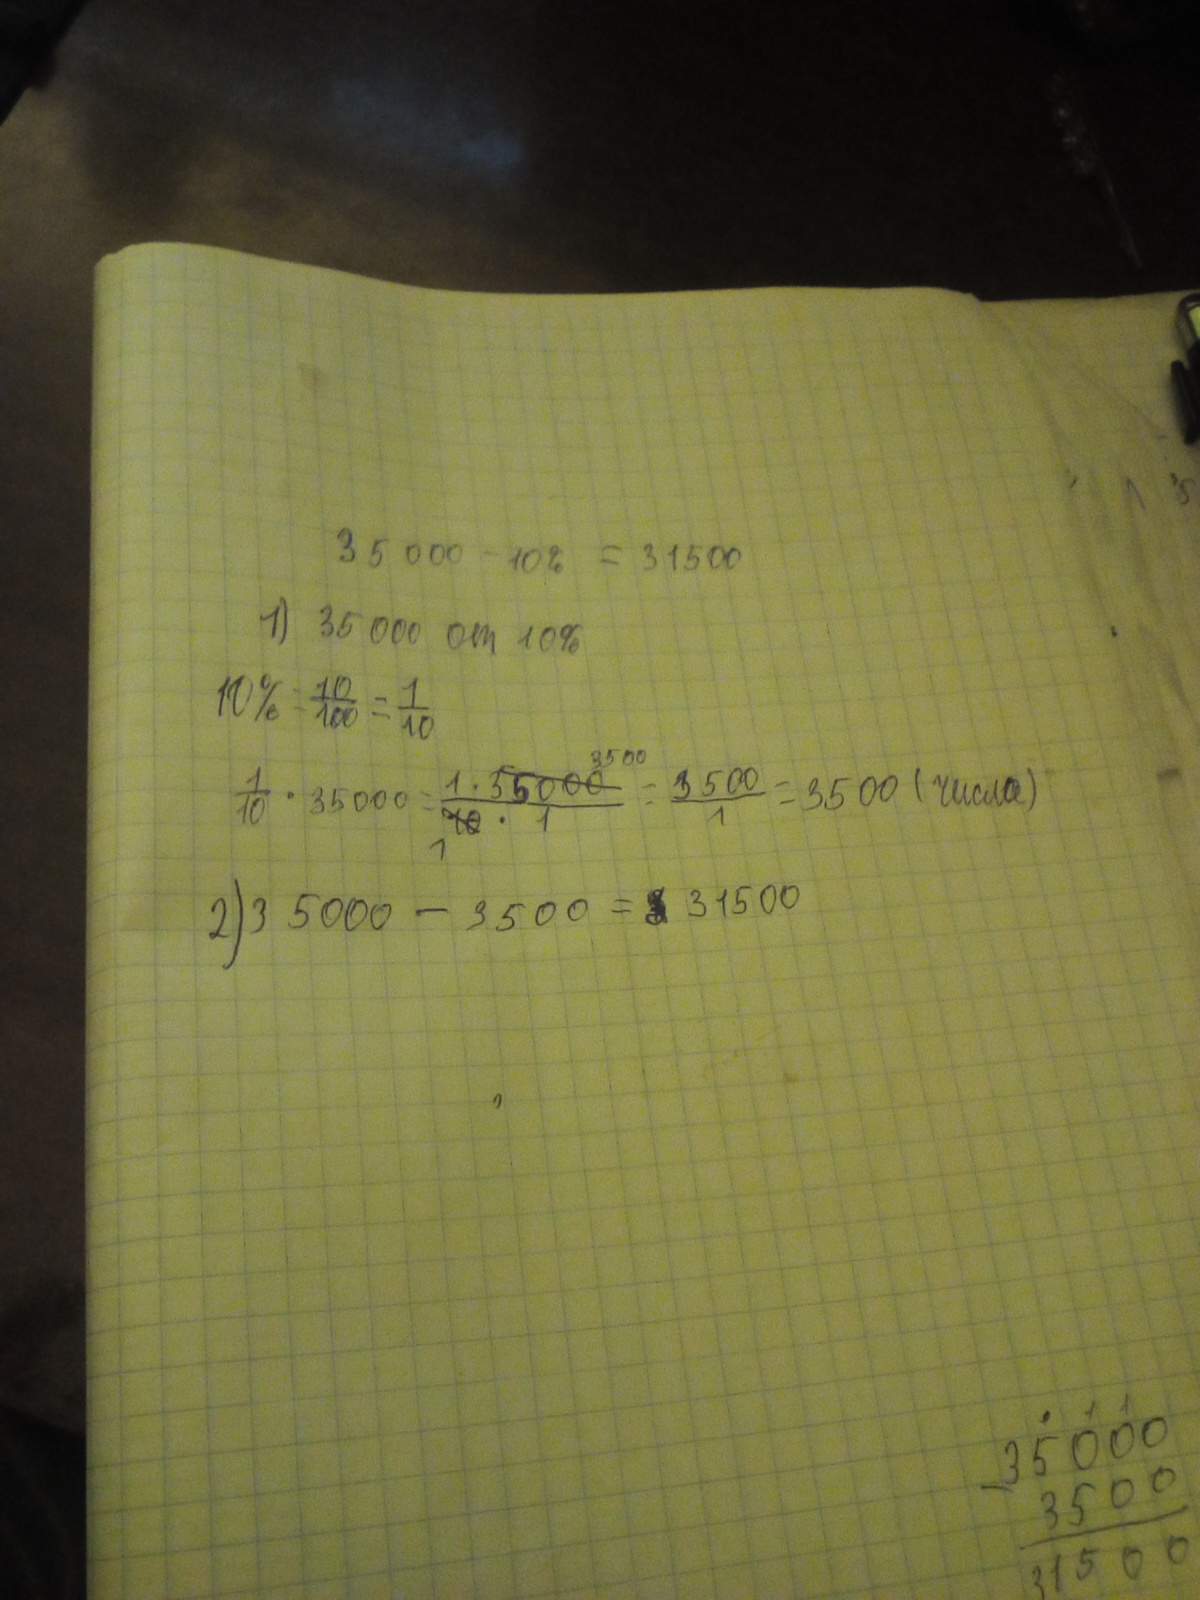 35000 - 10% = 31500
1) 35000 от 10%
10% = 10/100 = 1/10
1/10 · 35000 = 1 · 35000 3500 / 10 1 · 1 = 3500/1 = 3500 (числа)
2) 35000 - 3500 = 31500
35000
- 3500
31500